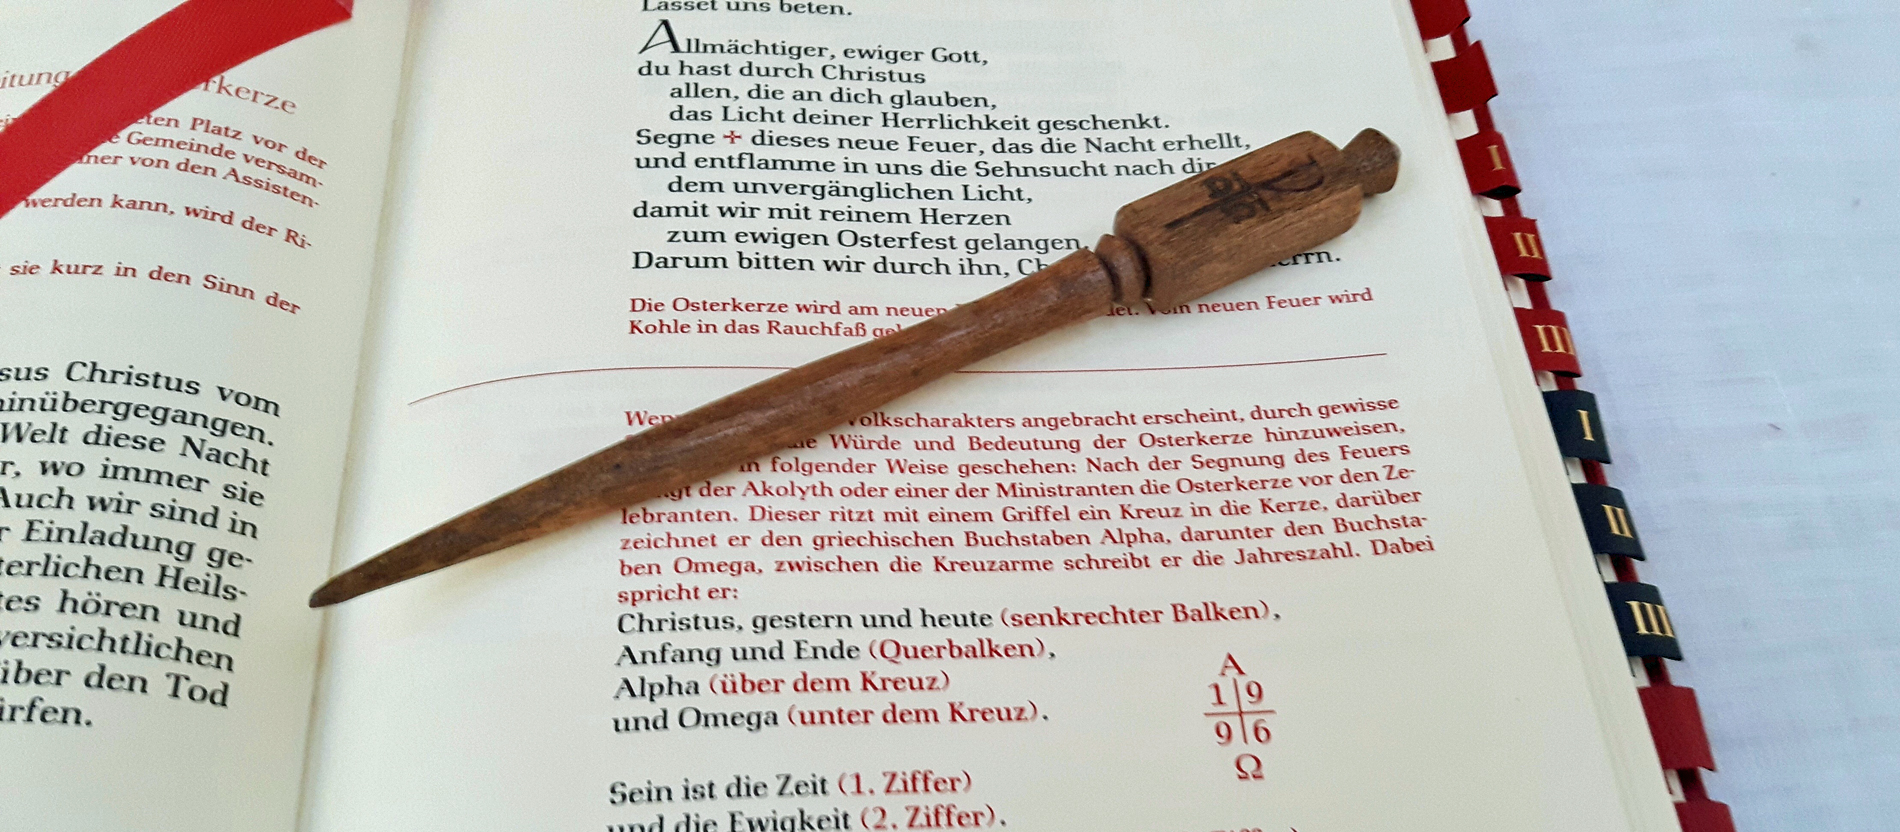 rkerze
ten Platz vor der
Gemeinde versam-
ner von den Assisten-
werden kann, wird der Ri-
sie kurz in den Sinn der
sus Christus vom
hinübergegangen.
Welt diese Nacht
r, wo immer sie
Auch wir sind in
r Einladung ge-
terlichen Heils-
tes hören und
versichtlichen
über den Tod
ürfen.
Lasset uns beten.
Allmächtiger, ewiger Gott,
du hast durch Christus
allen, die an dich glauben,
das Licht deiner Herrlichkeit geschenkt.
Segne ✢ dieses neue Feuer, das die Nacht erhellt,
und entflamme in uns die Sehnsucht nach dir,
dem unvergänglichen Licht,
damit wir mit reinem Herzen
zum ewigen Osterfest gelangen.
Darum bitten wir durch ihn, Ch
Die Osterkerze wird am neuen neuen Feuer wird
Kohle in das Rauchfaß
Volkscharakters angebracht erscheint, durch gewisse
Würde und Bedeutung der Osterkerze hinzuweisen,
in folgender Weise geschehen: Nach der Segnung des Feuers
der Akolyth oder einer der Ministranten die Osterkerze vor den Ze-
lebranten. Dieser ritzt mit einem Griffel ein Kreuz in die Kerze, darüber
zeichnet er den griechischen Buchstaben Alpha, darunter den Buchsta-
ben Omega, zwischen die Kreuzarme schreibt er die Jahreszahl. Dabei
spricht er:
Christus, gestern und heute (senkrechter Balken),
Anfang und Ende (Querbalken),
Alpha (über dem Kreuz)
und Omega (unter dem Kreuz).
A
1 9
9 6
Ω
Sein ist die Zeit (1. Ziffer)
und die Ewigkeit (2. Ziffer).
I
II
III
I
II
III